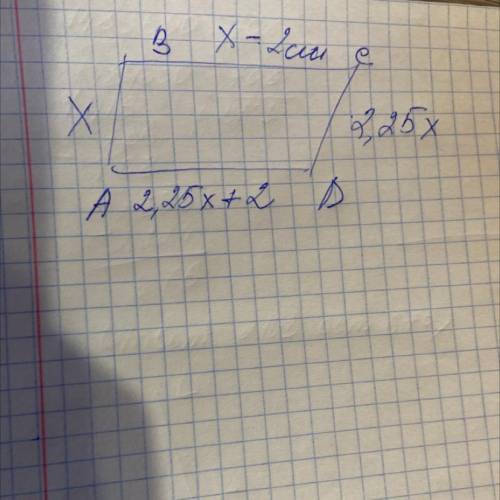 B X - 2см C
X 2,25x
A 2,25x+2 D